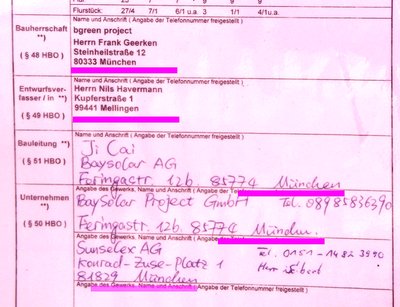 Flurstück: 27/4 7/1 6/1 u.a. 3 1/1 4/1u.a.
Bauherrschaft **) (§ 48 HBO)
Name und Anschrift ( Angabe der Telefonnummer freigestellt )
bgreen project
Herrn Frank Geerken
Steinheilstraße 12
80333 München
Entwurfsver-
fasser / in **)
(§ 49 HBO)
Name und Anschrift ( Angabe der Telefonnummer freigestellt )
Herrn Nils Havermann
Kupferstraße 1
99441 Mellingen
Bauleitung **)
(§ 51 HBO)
Name und Anschrift ( Angabe der Telefonnummer freigestellt )
Ji Cai
Baysolar AG
Feringastr. 12b, 85774 München
Unternehmen **)
(§ 50 HBO)
Angabe des Gewerks, Name und Anschrift ( Angabe der Tele
Baysolar Project GmbH Tel. 08985836390
Feringastr. 12b, 85774 München.
Angabe des Gewerks, Name und Anschrift ( Angabe der Telefonnummer freigestellt )
Sunselex AG Tel. 0151-1482 3990
Konrad-Zuse-Platz 1 Herr
81829 München
Angabe des Gewerks, Name und Anschrift ( Angabe der Telefonnummer freigestellt )